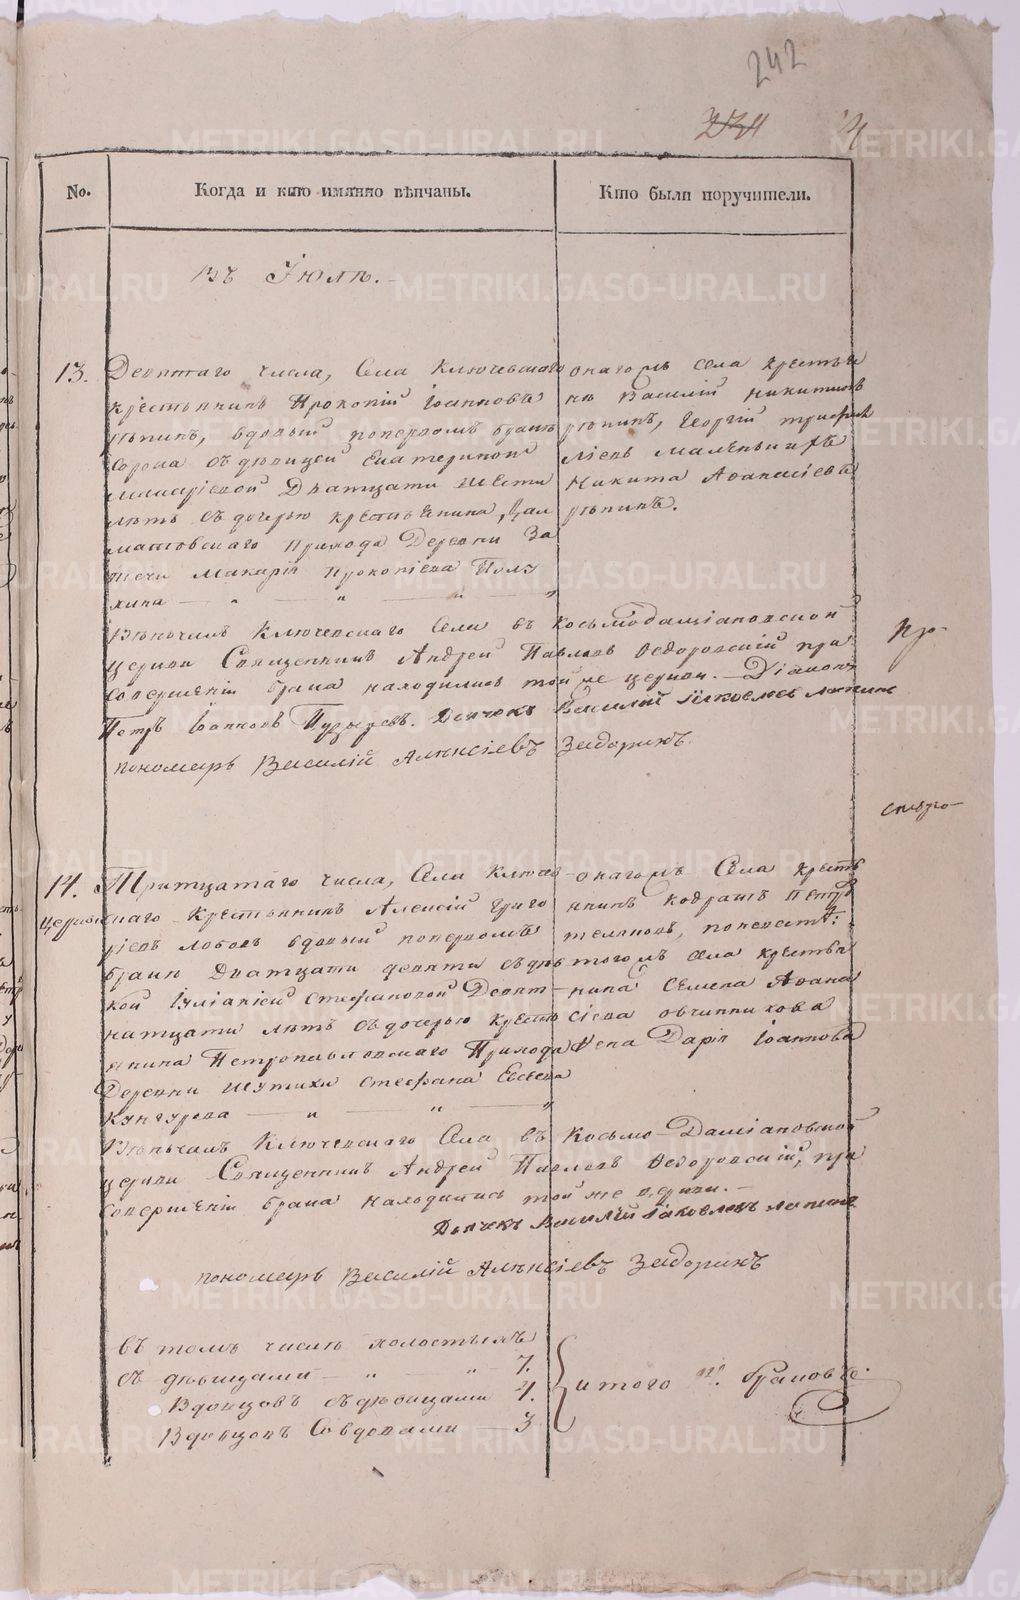 242
No.
Когда и кто имянно вѣнчаны.
Кто были поручители.
Въ Іюлѣ.
13.
Девятаго числа, Села Ключевскаго
крестьянинъ Прокопій Іоанновъ
Рѣпинъ, вдовый поперьвомъ бракѣ
Сорока съ дѣвицей Екатериной
Макаріевой Дватцати шести
лѣтъ съ дочерью крестьянина, Дал
матовскаго прихода Деревни За
течи Макарія Прокопіева Полу
хина — " — " — " — "
онагомъ села крестья
не Василій Никитинъ
рѣпинъ, Георгій трифи
ліевъ Маленьнихъ
Никита Аѳанасіевъ
рѣпинъ.
Вѣнчалъ Ключевскаго Села въ Косьмодаміановской
церкви Священникъ Андрей Павловъ Ѳедоровскій при
совершеніи брака находились той же церкви. — Діаконъ
Петръ Іоанновъ Пузыревъ. Дьячекъ Василій Яковлевъ Лапинъ
пономарь Василій Алѣксіевъ Задоринъ.
14.
Тритцатаго числа, Села Ключев
скаго Крестьянинъ Алексій Григо
ріевъ Лобовъ вдовый поперьвомъ
бракѣ Дватцати девяти съ дѣв
кой Іуліаніей Стефановой Девят
натцати лѣтъ съ дочерью кресть
янина Петропавловскаго Прихода
Деревни Шутихи Стефана Евсѣева
Кунгурова — " — " — "
онагомъ Села кресть
янинъ кодратъ Петръ
теляковъ, поневѣстѣ:
тогомъ села крестья
нина Семена Аѳана
сіева овчинникова
Жена Дарія Іоаннова
Вѣнчалъ Ключевскаго Села въ Косьмо-Даміановской
церкви Священникъ Андрей Павловъ Ѳедоровскій, при
совершеніи брака находились той же церкви. —
Дьячекъ Василій Яковлевъ Лапинъ
пономарь Василій Алѣксіевъ Задоринъ
въ томъ числѣ холостыхъ
съ дѣвицами — " — " — 7.
Вдовцовъ съ дѣвицами 4.
Вдовцовъ Совдовами — 3
итого 14. браковъ.